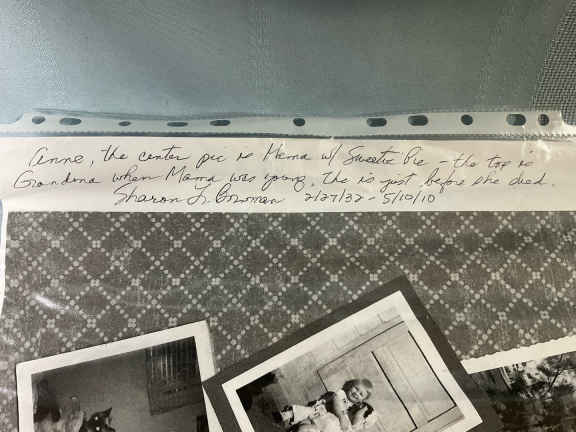 Anne, the center pic is Mama w/ Sweetie Pie - the top is
Grandma when Mama was young, the is just before she died.
Sharon L. Bowman 2/27/32 - 5/10/10